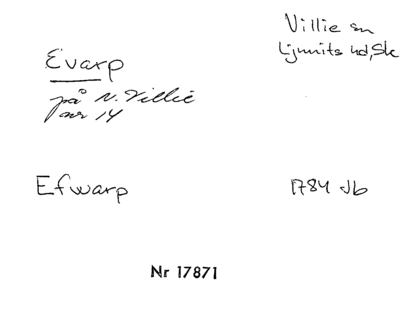 Villie sn
Ljunits hd, Sk
Evarp
på N. Villie
nr 14
Efwarp 1784 Jb
Nr 17871